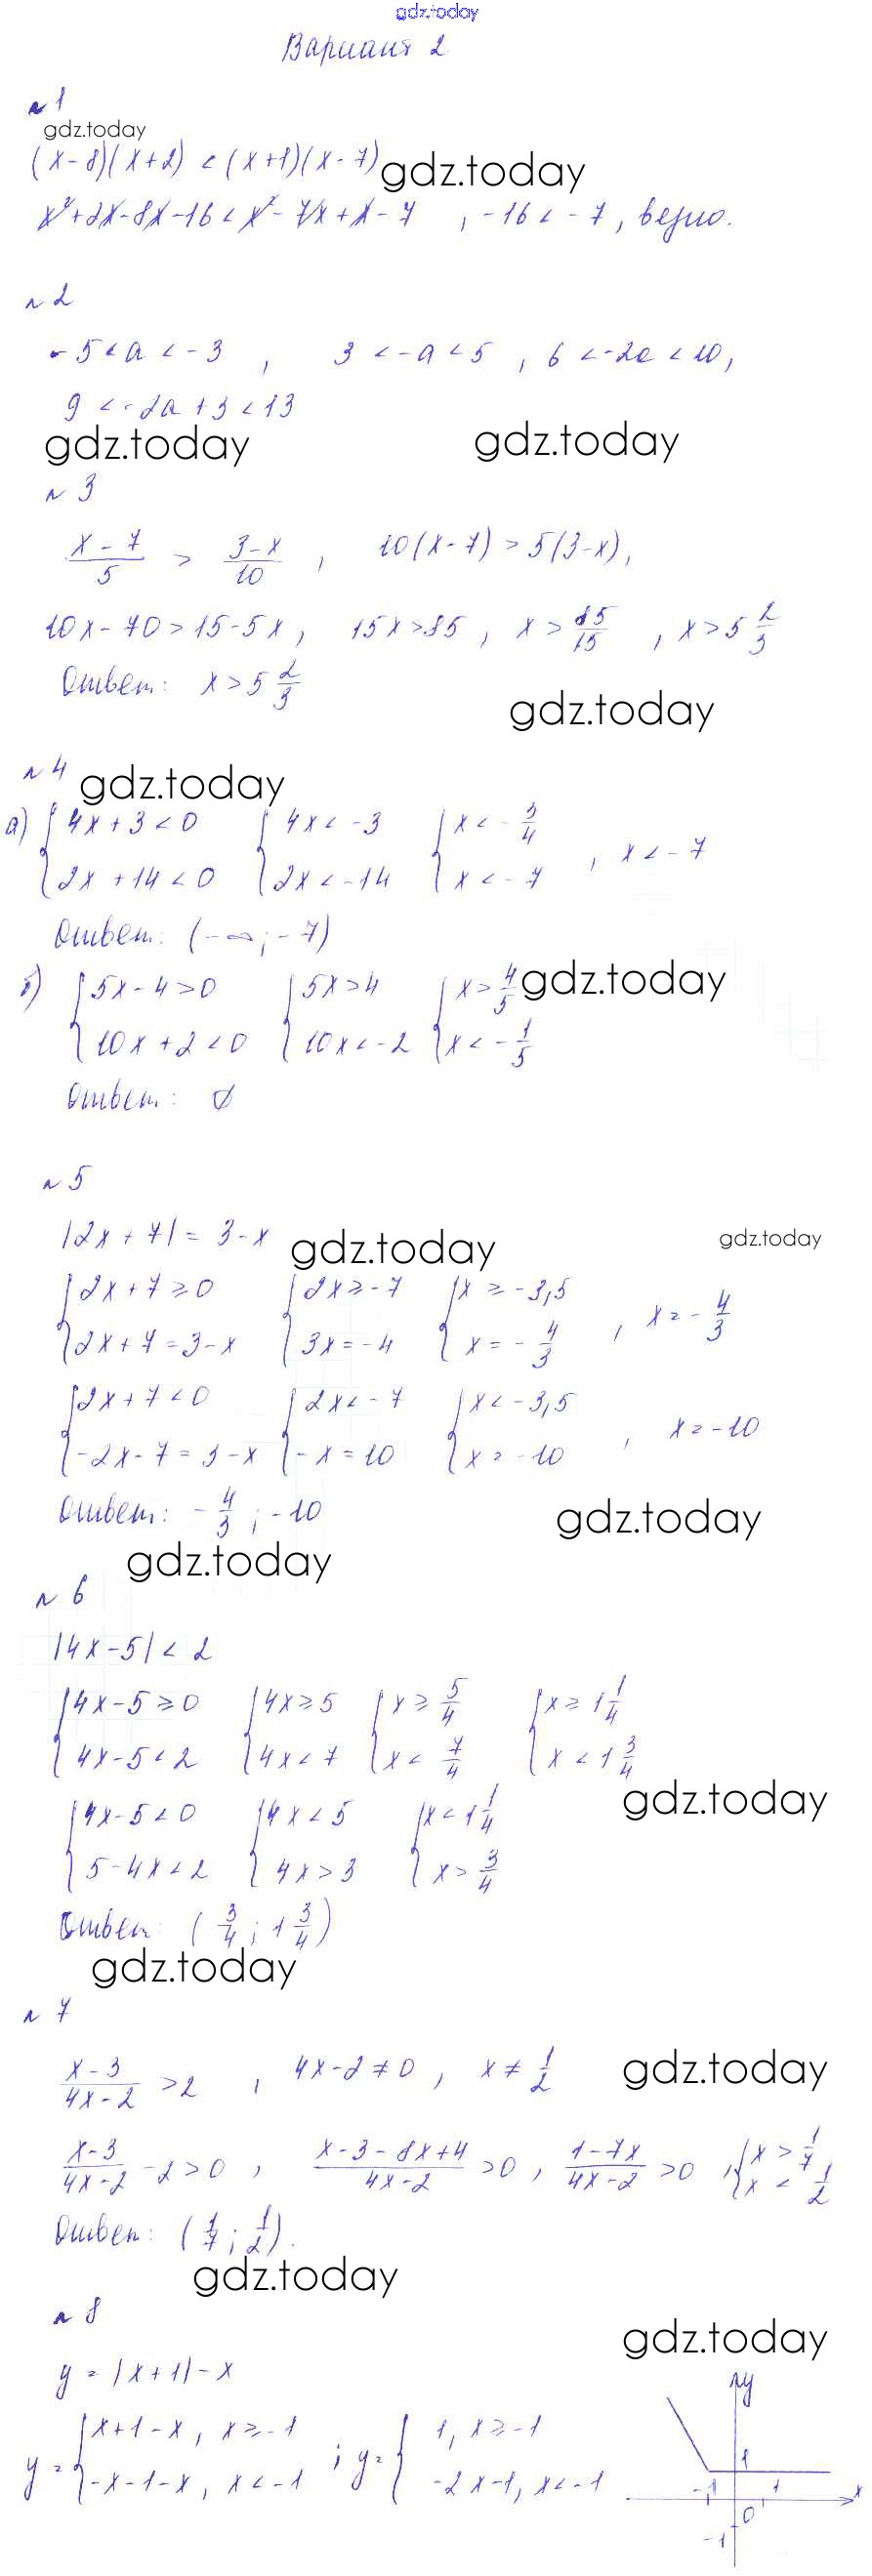 gdz.today
Вариант 2
№1
gdz.today
(x-8)(x+2) < (x+1)(x-7) gdz.today
x²+2x-8x-16 < x²-7x+x-7 , -16 < -7, верно.
№2
-5 < a < -3 , 3 < -a < 5 , 6 < -2a < 10,
9 < -2a+3 < 13
gdz.today gdz.today
№3
(x-7)/5 > (3-x)/10 , 10(x-7) > 5(3-x),
10x-70 > 15-5x, 15x > 85, x > 85/15 , x > 5 2/3
Ответ: x > 5 2/3
gdz.today
№4 gdz.today
а) { 4x+3 < 0 { 4x < -3 { x < -3/4
{ 2x+14 < 0 { 2x < -14 { x < -7 , x < -7
Ответ: (-∞; -7)
б) { 5x-4 > 0 { 5x > 4 { x > 4/5 gdz.today
{ 10x+2 < 0 { 10x < -2 { x < -1/5
Ответ: ∅
№5
|2x+7| = 3-x gdz.today gdz.today
{ 2x+7 ≥ 0 { 2x ≥ -7 { x ≥ -3,5
{ 2x+7 = 3-x { 3x = -4 { x = -4/3 , x = -4/3
{ 2x+7 < 0 { 2x < -7 { x < -3,5
{ -2x-7 = 3-x { -x = 10 { x = -10 , x = -10
Ответ: -4/3 ; -10
gdz.today
gdz.today
№6
|4x-5| < 2
{ 4x-5 ≥ 0 { 4x ≥ 5 { x ≥ 5/4 { x ≥ 1 1/4
{ 4x-5 < 2 { 4x < 7 { x < 7/4 { x < 1 3/4
gdz.today
{ 4x-5 < 0 { 4x < 5 { x < 1 1/4
{ 5-4x < 2 { 4x > 3 { x > 3/4
Ответ: (3/4 ; 1 3/4)
gdz.today
№7
(x-3)/(4x-2) > 2 , 4x-2 ≠ 0 , x ≠ 1/2 gdz.today
(x-3)/(4x-2) - 2 > 0 , (x-3-8x+4)/(4x-2) > 0 , (1-7x)/(4x-2) > 0 , { x > 1/7
{ x < 1/2
Ответ: (1/7 ; 1/2).
gdz.today
№8
gdz.today
y = |x+1| - x
y = { x+1-x, x ≥ -1 ; y = { 1, x ≥ -1
{ -x-1-x, x < -1 { -2x-1, x < -1
y
1
-1 1 x
0
-1